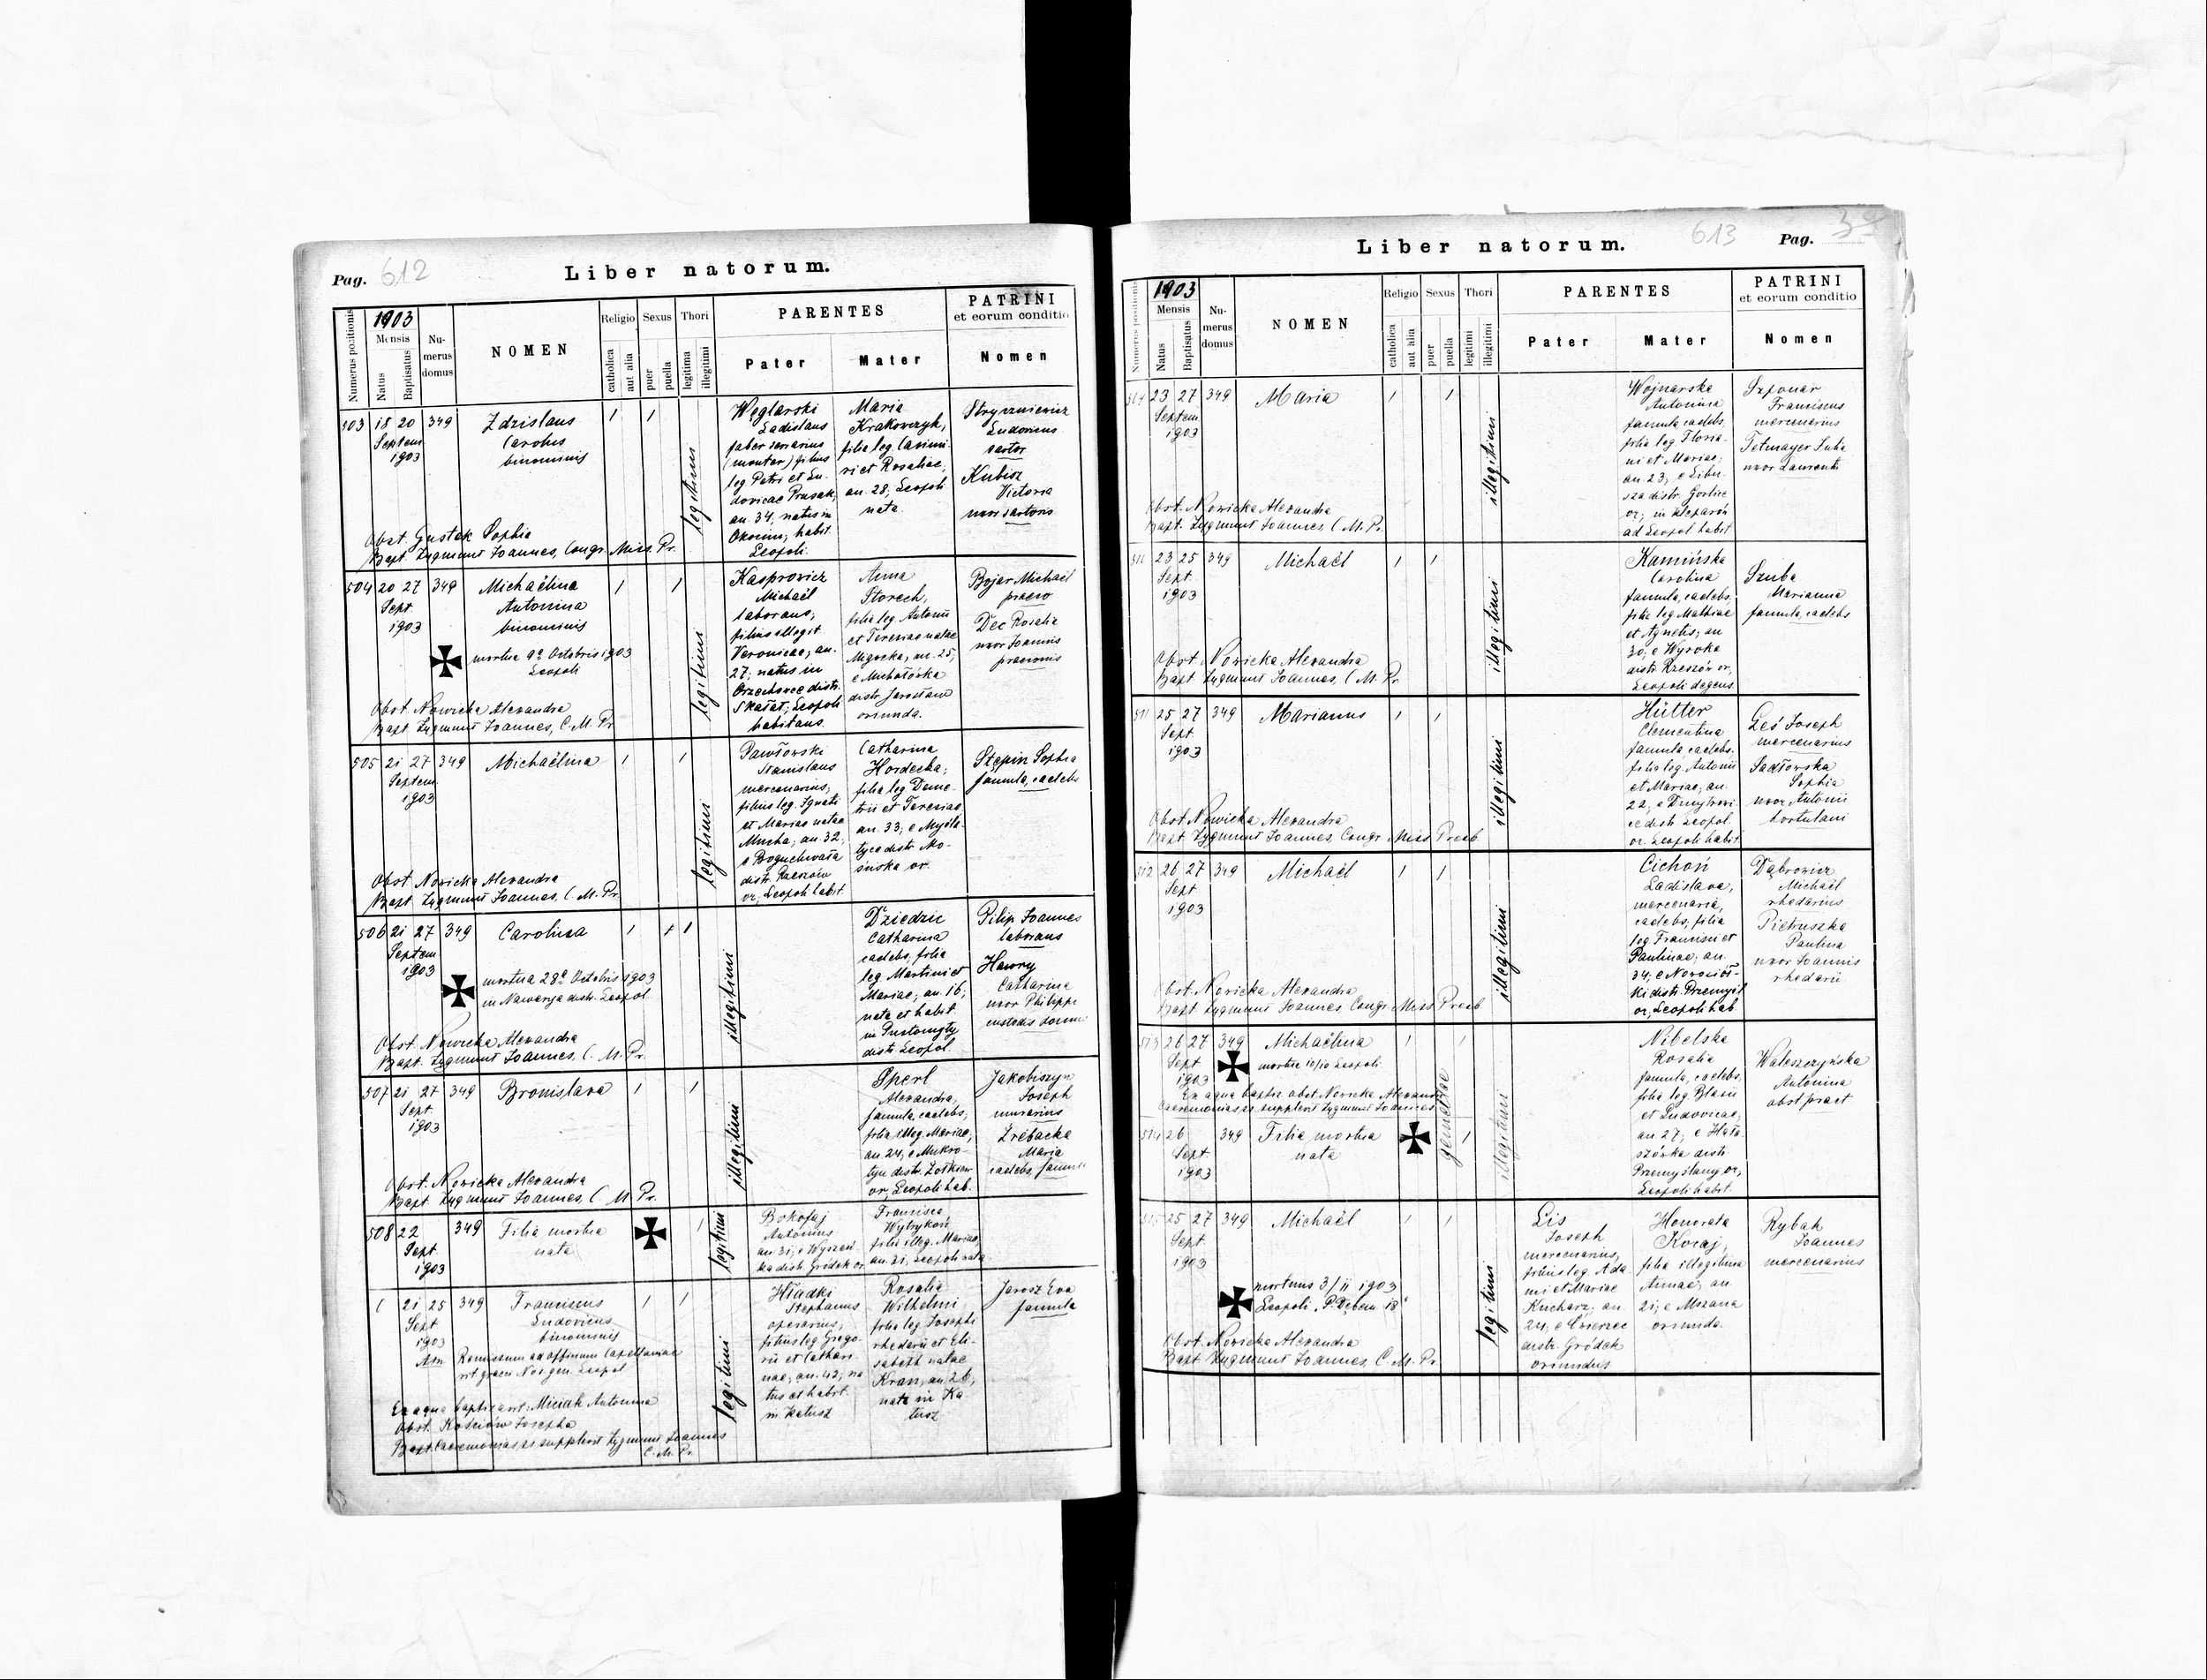 Pag. 612
Liber natorum.
Numerus positionis
1903
Mensis
Natus
Baptisatus
Nu-
merus
domus
NOMEN
Religio
catholica
aut alia
Sexus
puer
puella
Thori
legitima
illegitimi
PARENTES
Pater
Mater
PATRINI
et eorum conditio
Nomen
503 18 20 349
Septem
1903
Zdzislaus
Carolus
binominis
legitimi
Węglarski
Ladislaus
faber serarius
(monter) filius
leg Petri et Lu-
dovicae Prusak,
an. 34, natus in
habit.
Leopoli.
Maria
Krakowczyk,
filia leg. Casimi-
ri et Rosaliae,
an. 28, Leopoli
nata.
Ludovicus
sartor
Kubisz
Victoria
uxor sartoris
Obst. Gustek Sophia
Bapt Zygmunt Joannes, Congr. Miss. Pr.
504 20 27 349
Sept.
1903
Michaëlina
Antonina
binominis
mortua 9ª Octobris 1903
Leopoli
legitimi
Kasprowicz
Michaël
laborans,
filius illegit
Veronicae, an.
27, natus in
Orzechowce distr.
Skałat, Leopoli
habitans.
Anna
Storech,
filia leg. Antonii
et Teresiae natae
an. 25,
distr. Jarosław
oriunda.
Bojar Michaël
praeco
Dec Rosalia
uxor Joannis
praeconis
Obst. Nowicka Alexandra
Bapt. Zygmunt Joannes, C. M. Pr.
505 21 27 349
Septem
1903
Michaëlina
legitimi
Pawłowski
Stanislaus
mercenarius,
filius leg. Ignati
et Mariae natae
Mucha, an. 32,
e Boguchwała
distr. Rzeszów
or, Leopoli habit.
Catharina
Hordecka,
filia leg Deme-
trii et Teresiae,
an. 33, e Myśla-
tyce distr. Mo-
ściska or.
Stępin Sophia
famula, caelebs
Obst. Nowicka Alexandra
Bapt. Zygmunt Joannes, C. M. Pr.
506 21 27 349
Septem
1903
Carolina
mortua 28ª Octobris 1903
in Nawarya distr. Leopol
illegitimi
Dziedzic
Catharina
caelebs, filia
leg Martini et
Mariae, an. 16,
nata et habit.
in Pustomyty
distr. Leopol.
Pilip Joannes
laborans
Hawry
Catharina
uxor Philippi
custodis domus
Obst. Nowicka Alexandra
Bapt. Zygmunt Joannes, C. M. Pr.
507 21 27 349
Sept.
1903
Bronislava
illegitimi
Sperl
Alexandra,
famula, caelebs,
filia illeg. Mariae,
an. 24, e Mokro-
tyn distr. Żółkiew
or, Leopoli hab.
Jakobiszyn
Joseph
murarius
Źrebacka
Maria
caelebs, famula
Obst. Nowicka Alexandra
Bapt. Zygmunt Joannes, C. M. Pr.
508 22
Sept.
1903
349
Filia mortua
nata
legitimi
Antonius
an. 31, e
distr. Gródek or.
Francisca
Wytrykoń
filia illeg. Mariae,
an. 21, Leopoli nata
1 21 25 349
Sept
1903
Franciscus
Ludovicus
binominis
Remissum ad officium Capellaniae
rit. graeci Nos. gen. Leopol
legitimi
Hładki
Stephanus
operarius,
filius leg Grego-
rii et Cathari-
nae, an. 42, na-
tus et habit.
in
Rosalia
Wilhelmi
filia leg. Josephi
rhedarii et Eli-
sabeth natae
Kran, an. 26,
nata in Ka-
tusz
Jarosz Eva
famula
Ex aqua baptisavit: Miciak Antonina
Obst. Kościów Josepha
Bapt. Caeremonias ss supplevit Zygmunt Joannes
C. M. Pr.
Liber natorum.
613
Pag.
Numerus positionis
1903
Mensis
Natus
Baptisatus
Nu-
merus
domus
NOMEN
Religio
catholica
aut alia
Sexus
puer
puella
Thori
legitimi
illegitimi
PARENTES
Pater
Mater
PATRINI
et eorum conditio
Nomen
23 27 349
Septem
1903
Maria
illegitimi
Wojnarska
Antonina
famula, caelebs,
filia leg. Floria-
ni et Mariae,
an. 23, e Libu-
sza distr. Gorlice
or, in Kleparów
ad Leopol habit
Szponar
Franciscus
mercenarius
Tetmayer Julia
uxor Laurentii
Obst. Nowicka Alexandra
Bapt. Zygmunt Joannes, C. M. Pr.
23 25 349
Sept.
1903
Michaël
illegitimi
Kamińska
Carolina
famula, caelebs,
filia leg Mathiae
et Agnetis, an
30, e Wysoka
distr. Rzeszów or,
Leopoli degens
Szuba
Marianna
famula, caelebs
Obst. Nowicka Alexandra
Bapt. Zygmunt Joannes, C. M. Pr.
511 25 27 349
Sept
1903
Marianus
illegitimi
Hütter
Clementina
famula, caelebs.
filia leg. Antonii
et Mariae, an.
22, e Dmytrowi-
ce distr. Leopol
or. Leopoli habit
Leś Joseph
mercenarius
Sadłowska
Sophia
uxor Antonii
hortulani
Obst. Nowicka Alexandra
Bapt. Zygmunt Joannes, Congr. Miss. Presb.
512 26 27 349
Sept
1903
Michaël
illegitimi
Cichoń
Ladislava,
mercenaria,
caelebs, filia
leg Francisci et
Paulinae, an.
34, e Nowosiół-
ki distr. Przemyśl
or, Leopoli hab.
Dąbrowicz
Michaël
rhedarius
Pietruszka
Paulina
uxor Joannis
rhedarii
Obst. Nowicka Alexandra
Bapt. Zygmunt Joannes, Congr. Miss. Presb
513 26 27 349
Sept
1903
Michaëlina
mortua 10/10 Leopoli
Ex aqua baptis. obst. Nowicka Alexandra
Caeremonias ss supplevit Zygmunt Joannes
gemellae
illegitimi
Nibelska
Rosalia
famula, caelebs,
filia leg. Blasii
et Ludovicae,
an 27, e Hana-
czówka distr.
Przemyślany or,
Leopoli habit.
Waleszczyńska
Antonina
obst. pract
514 26
Sept
1903
349
Filia mortua
nata
25 27 349
Sept
1903
Michaël
mortuus 3/11 1903
Leopoli,
legitimi
Lis
Joseph
mercenarius,
filius leg. Ada-
mi et Mariae
Kucharz, an.
24, e
distr. Gródek
oriundus
Honorata
Koraj,
filia illegitima
Annae, an.
21, e Mszana
oriunda.
Rybak
Joannes
mercenarius
Obst. Nowicka Alexandra
Bapt. Zygmunt Joannes, C. M. Pr.